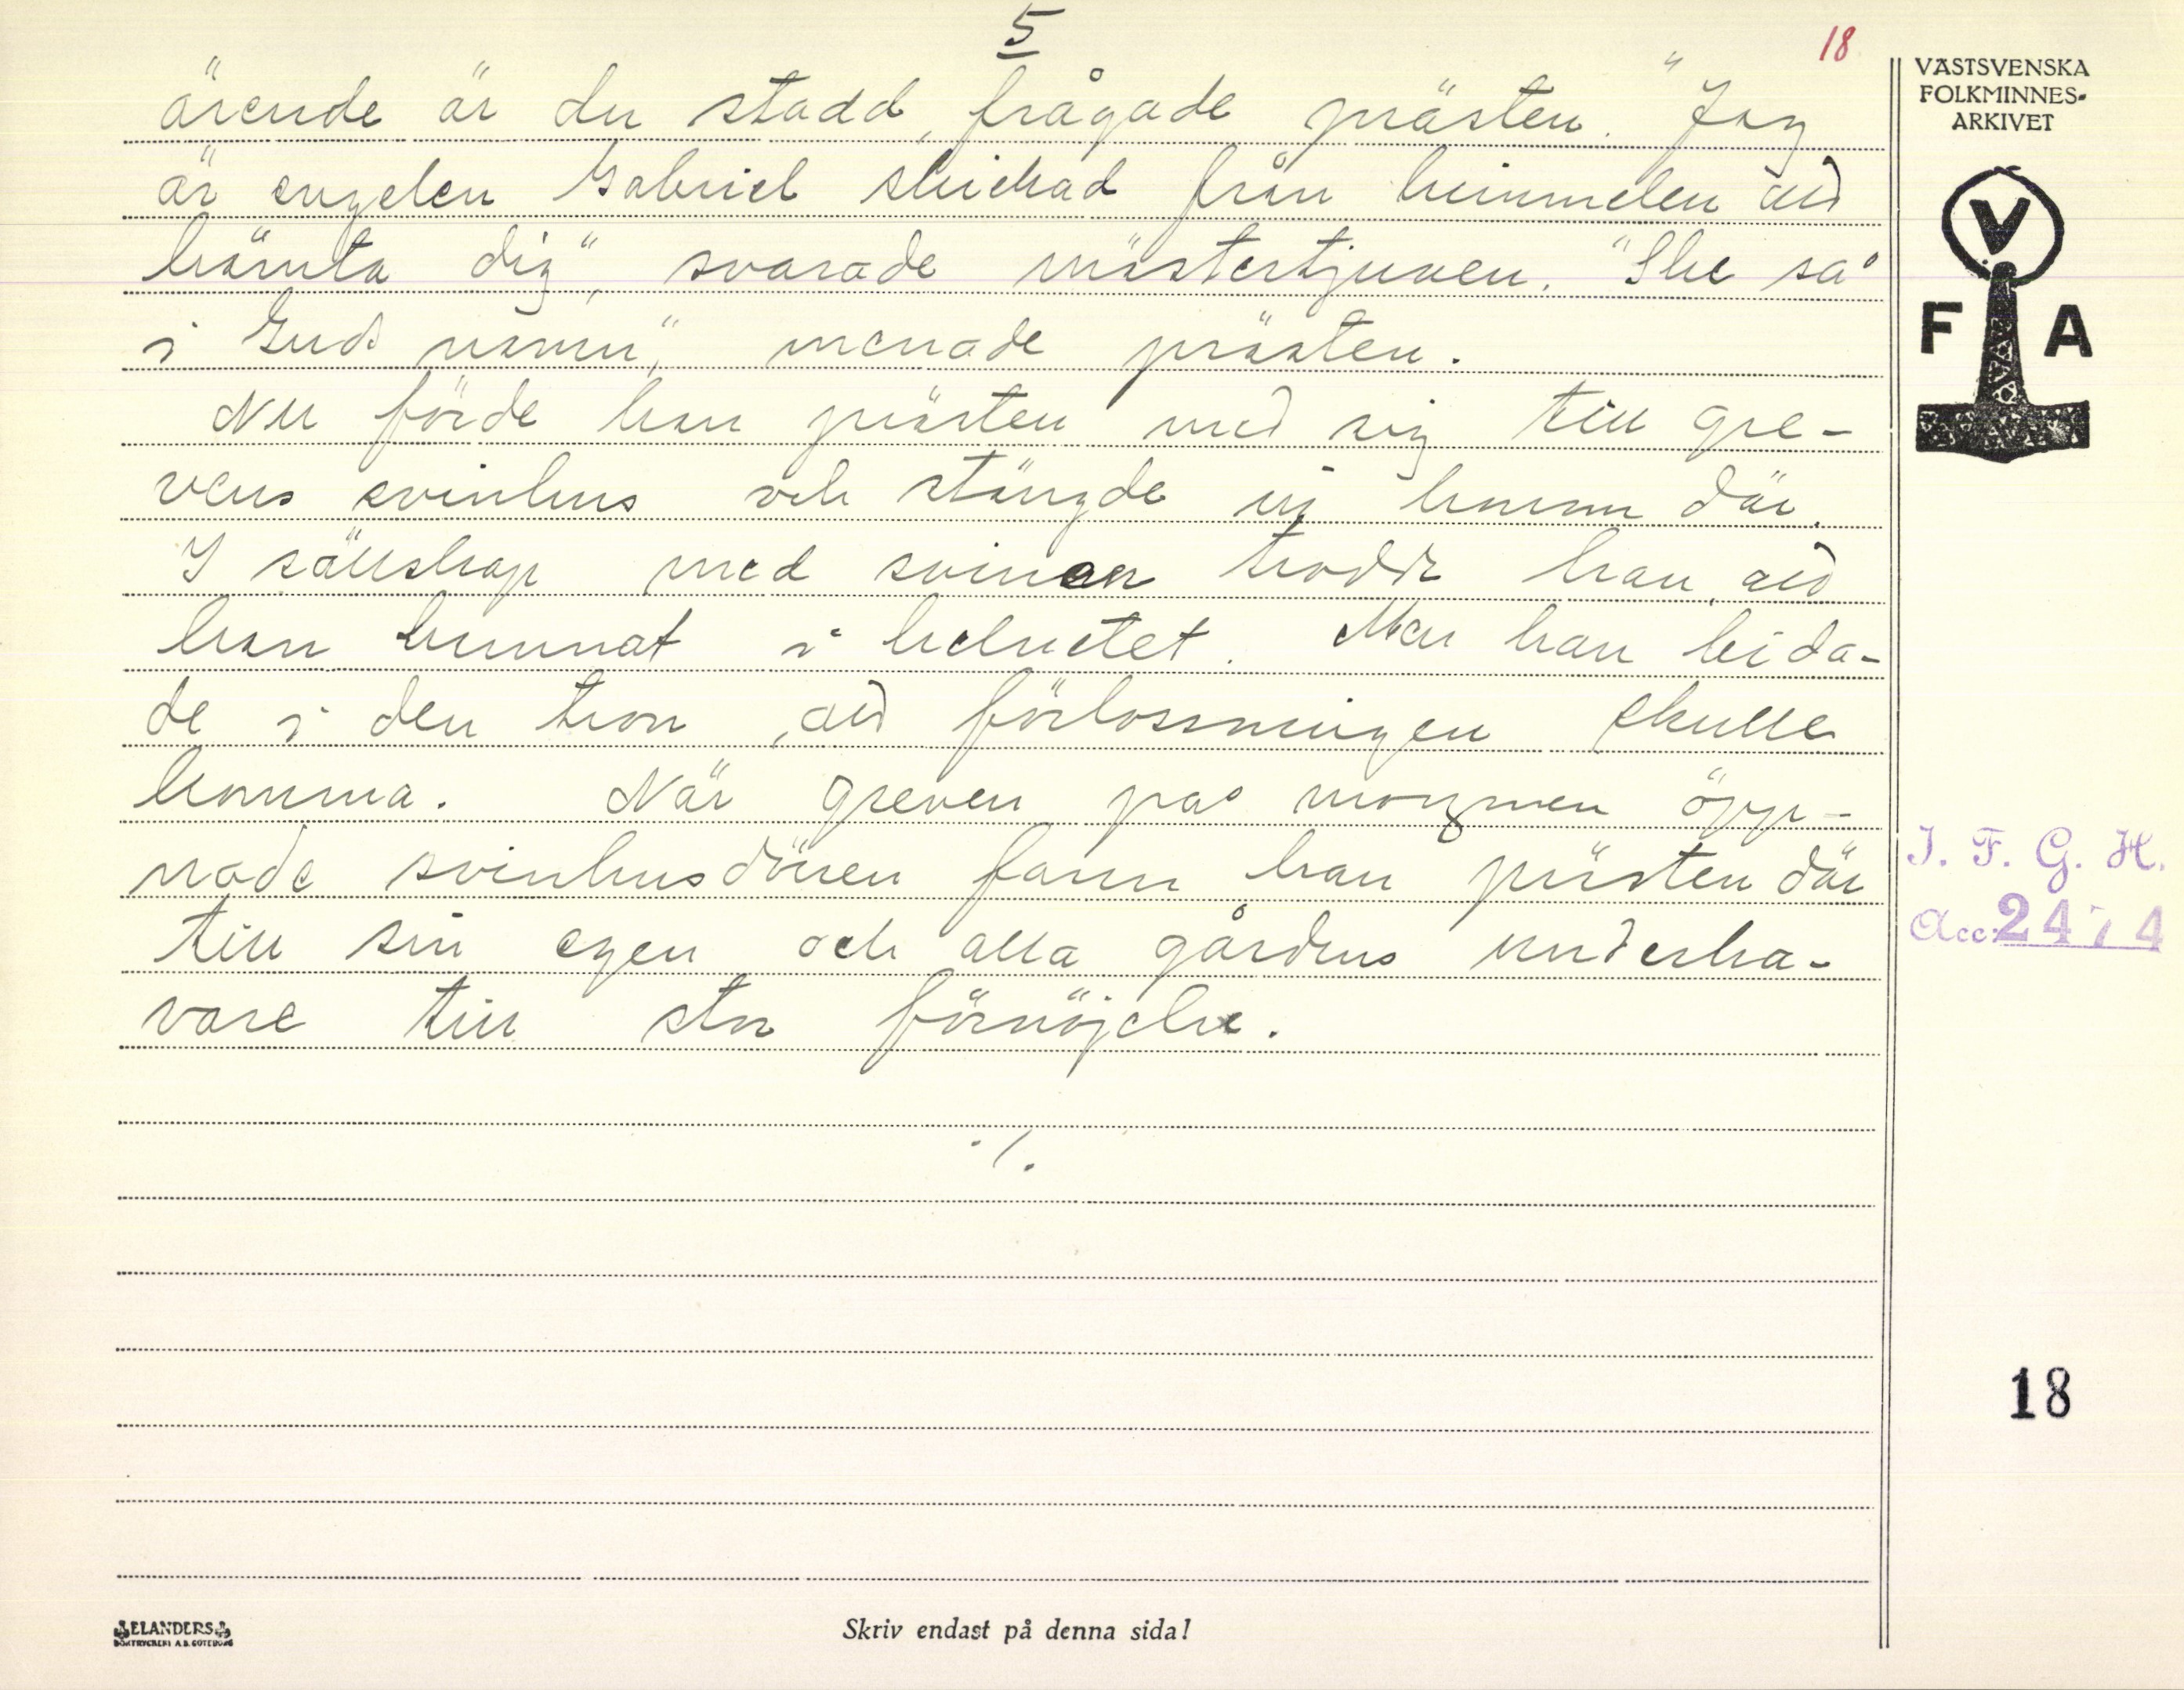 5
18
ärende är du stadd, frågade prästen. "Jag
är engelen Gabriel skickad från himmelen att
hämta dig", svarade mästertjuven. "Ske så
i Guds namn", menade prästen.
Nu förde han prästen med sig till gre-
vens svinhus och stängde in honom där.
I sällskap med svinen trodde han, att
han hamnat i helvetet. Men han bida-
de i den tron, att förlossningen skulle
komma. När greven på morgonen öpp-
nade svinhusdörren fann han prästen där
till sin egen och alla gårdens underha-
vare till stor förnöjelse.
./.
VÄSTSVENSKA
FOLKMINNES-
ARKIVET
V
F A
I. F. G. H.
Acc: 2474
18
ELANDERS
BOKTRYCKERI A.B. GÖTEBORG
Skriv endast på denna sida!